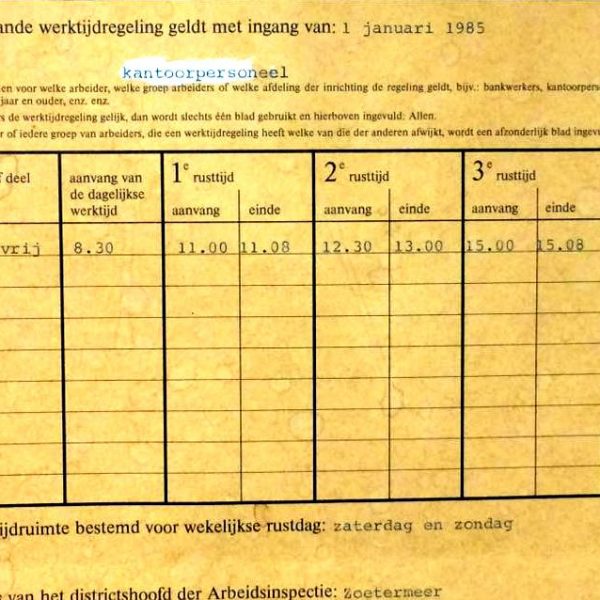 ande werktijdregeling geldt met ingang van: 1 januari 1985
kantoorpersoneel
en voor welke arbeider, welke groep arbeiders of welke afdeling der inrichting de regeling geldt, bijv.: bankwerkers, kantoorperso
jaar en ouder, enz. enz.
s de werktijdregeling gelijk, dan wordt slechts één blad gebruikt en hierboven ingevuld: Allen.
r of iedere groep van arbeiders, die een werktijdregeling heeft welke van die der anderen afwijkt, wordt een afzonderlijk blad ingevu
f deel aanvang van de dagelijkse werktijd 1e rusttijd 2e rusttijd 3e rusttijd
aanvang einde aanvang einde aanvang einde
vrij 8.30 11.00 11.08 12.30 13.00 15.00 15.08
ijdruimte bestemd voor wekelijkse rustdag: zaterdag en zondag
e van het districtshoofd der Arbeidsinspectie: Zoetermeer